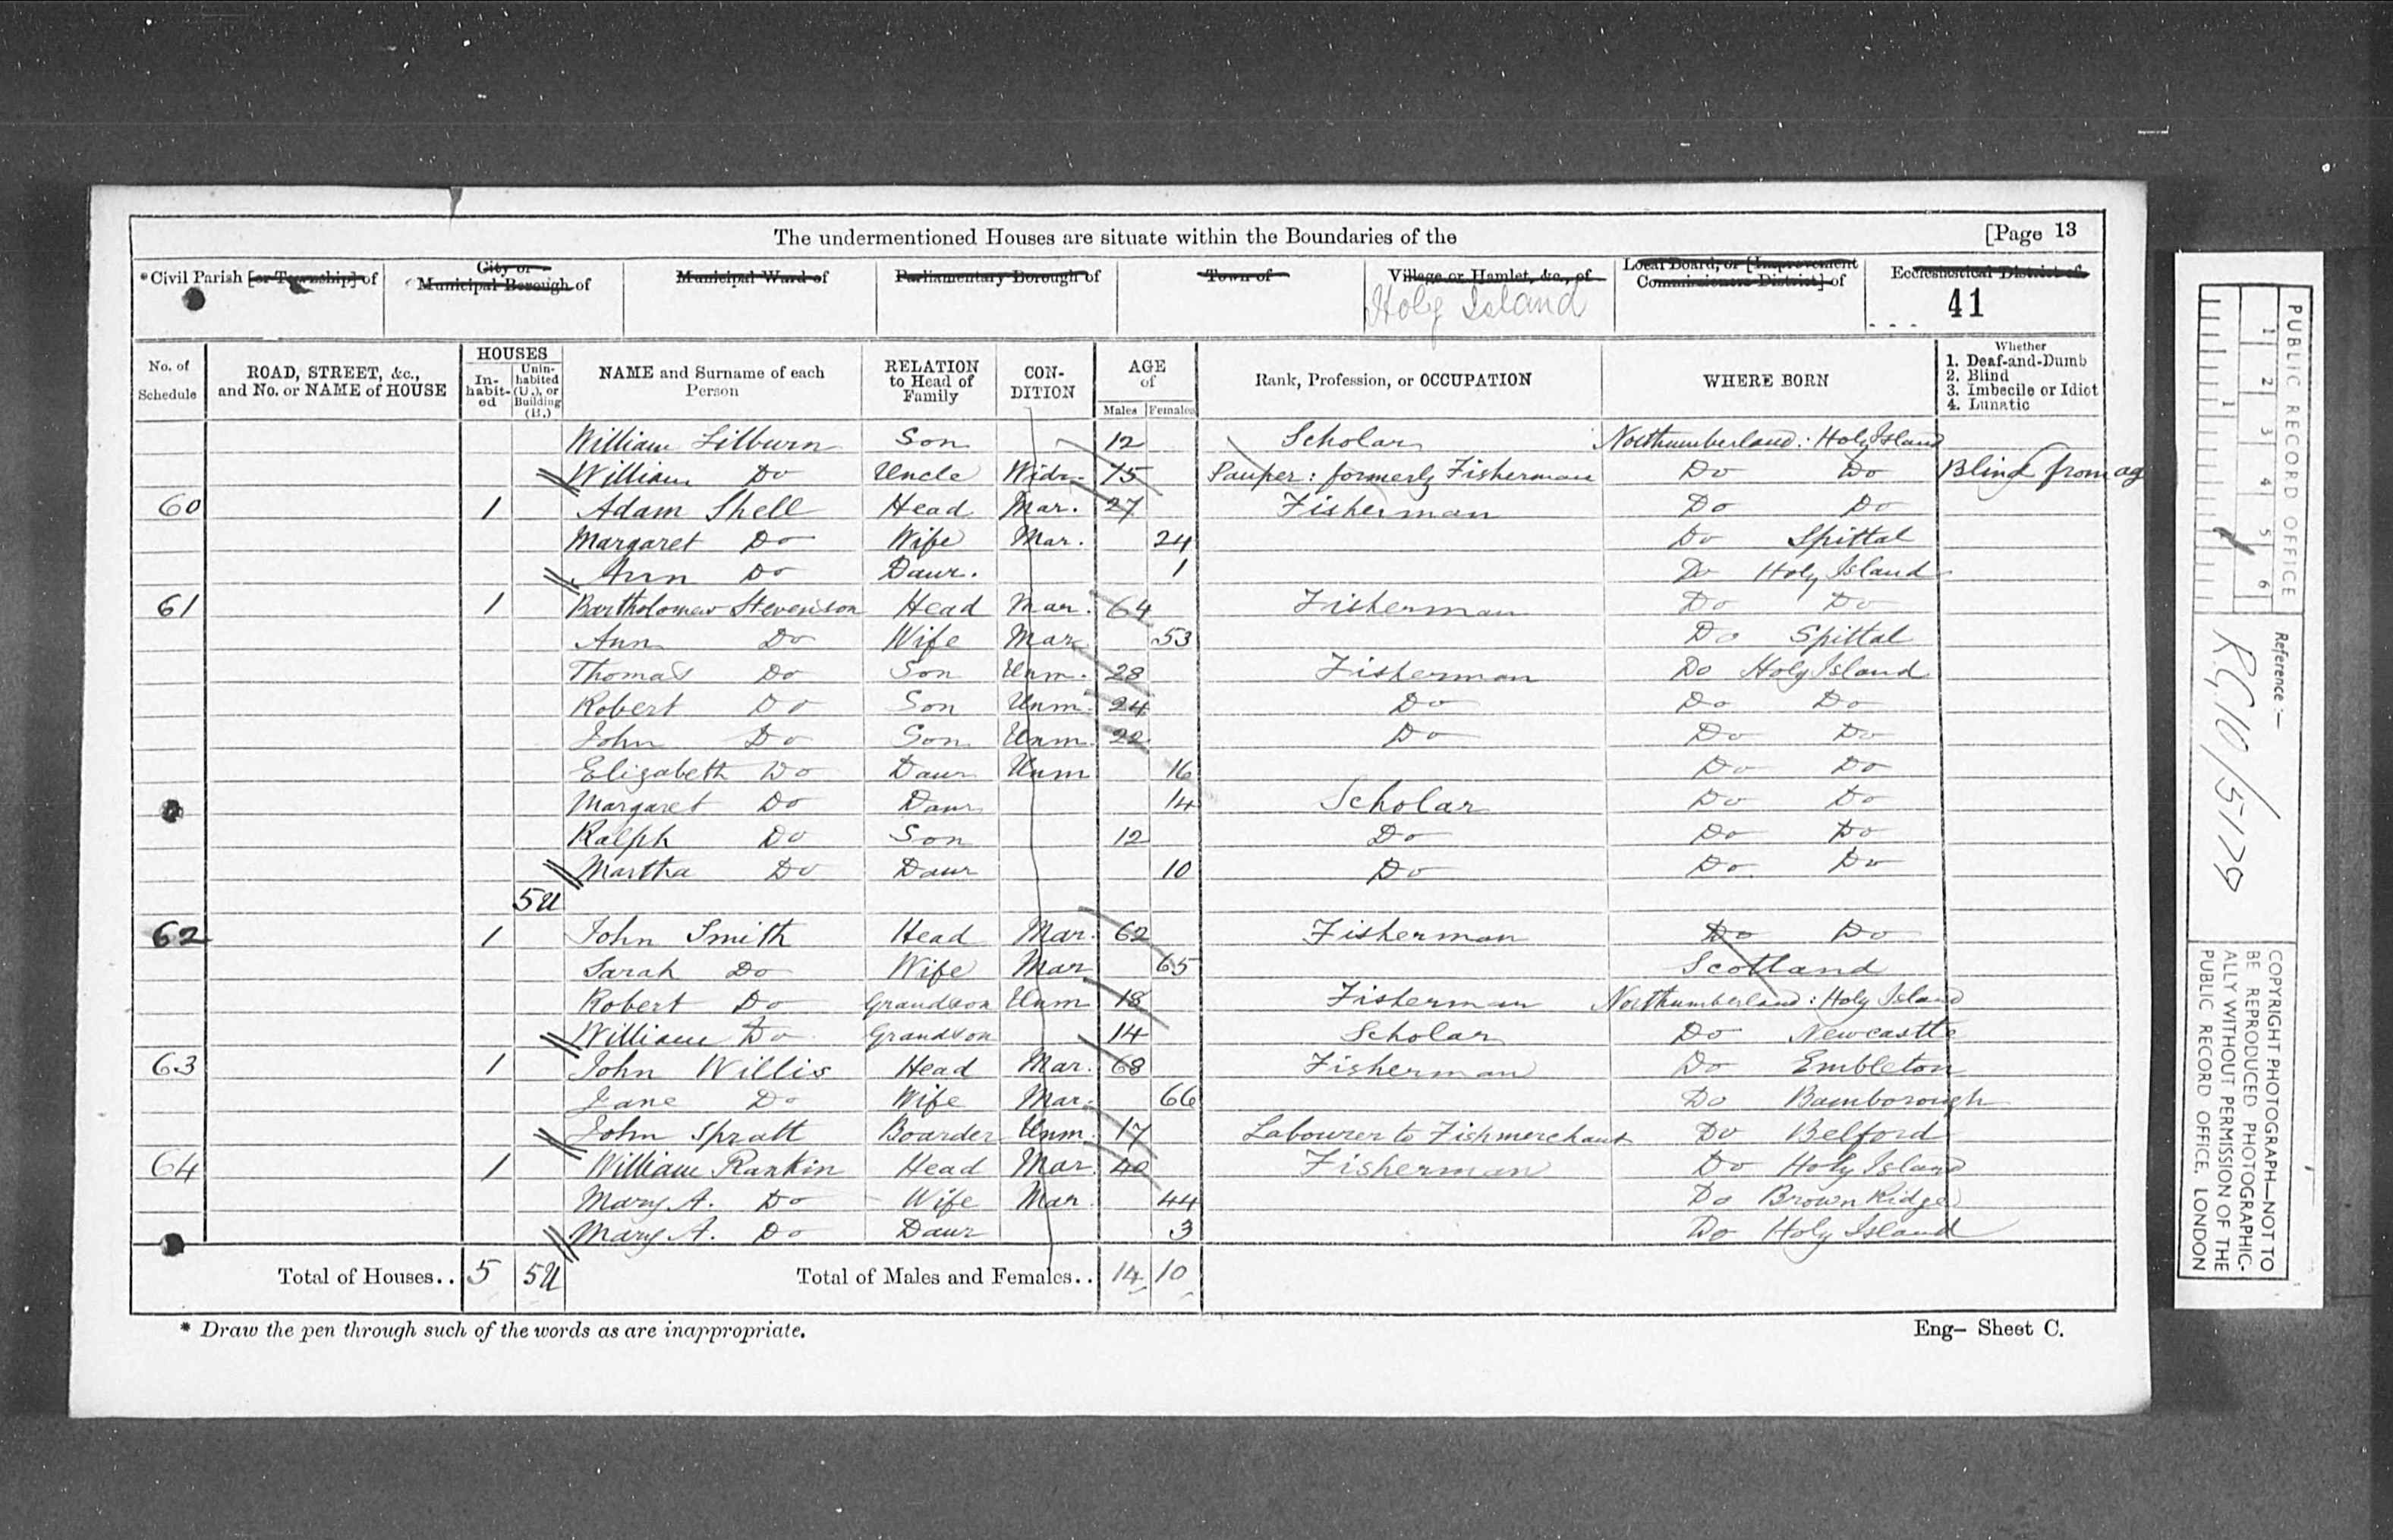 The undermentioned Houses are situate within the Boundaries of the [Page 13
*Civil Parish [or Township] of City or Municipal Borough of Municipal Ward of Parliamentary Borough of Town of Village or Hamlet, &c., of Local Board, or [Improvement Commissioners District] of Ecclesiastical District of
Holy Island 41
No. of Schedule ROAD, STREET, &c., and No. or NAME of HOUSE HOUSES In-habit-ed Unin-habited (U.), or Building (B.) NAME and Surname of each Person RELATION to Head of Family CON-DITION AGE of Males Females Rank, Profession, or OCCUPATION WHERE BORN Whether 1. Deaf-and-Dumb 2. Blind 3. Imbecile or Idiot 4. Lunatic
William Lilburn Son 12 Scholar Northumberland: Holy Island
William Do Uncle Widr 75 Pauper: formerly Fisherman Do Do Blind from ag
60 1 Adam Shell Head Mar. 27 Fisherman Do Do
Margaret Do Wife Mar. 24 Do Spittal
Ann Do Daur. 1 Do Holy Island
61 1 Bartholomew Stevenson Head Mar. 64 Fisherman Do Do
Ann Do Wife Mar 53 Do Spittal
Thomas Do Son Unm. 28 Fisherman Do Holy Island
Robert Do Son Unm. 24 Do Do Do
John Do Son Unm. 22 Do Do Do
Elizabeth Do Daur Unm 16 Do Do
Margaret Do Daur 14 Scholar Do Do
Ralph Do Son 12 Do Do Do
Martha Do Daur 10 Do Do Do
5U
62 1 John Smith Head Mar. 62 Fisherman Do Do
Sarah Do Wife Mar 65 Scotland
Robert Do Grandson Unm 18 Fisherman Northumberland: Holy Island
William Do Grandson 14 Scholar Do Newcastle
63 1 John Willis Head Mar. 68 Fisherman Do Embleton
Jane Do Wife Mar. 66 Do Bamborough
John Spratt Boarder Unm. 17 Labourer to Fishmerchant Do Belford
64 1 William Rankin Head Mar. 40 Fisherman Do Holy Island
Mary A. Do Wife Mar 44 Do Brown Ridge
Mary A. Do Daur 3 Do Holy Island
Total of Houses.. 5 5U Total of Males and Females.. 14 10
* Draw the pen through such of the words as are inappropriate. Eng- Sheet C.
PUBLIC RECORD OFFICE
1 2 3 4 5 6
1
Reference:-
RG 10/5179
COPYRIGHT PHOTOGRAPH—NOT TO
BE REPRODUCED PHOTOGRAPHIC-
ALLY WITHOUT PERMISSION OF THE
PUBLIC RECORD OFFICE, LONDON